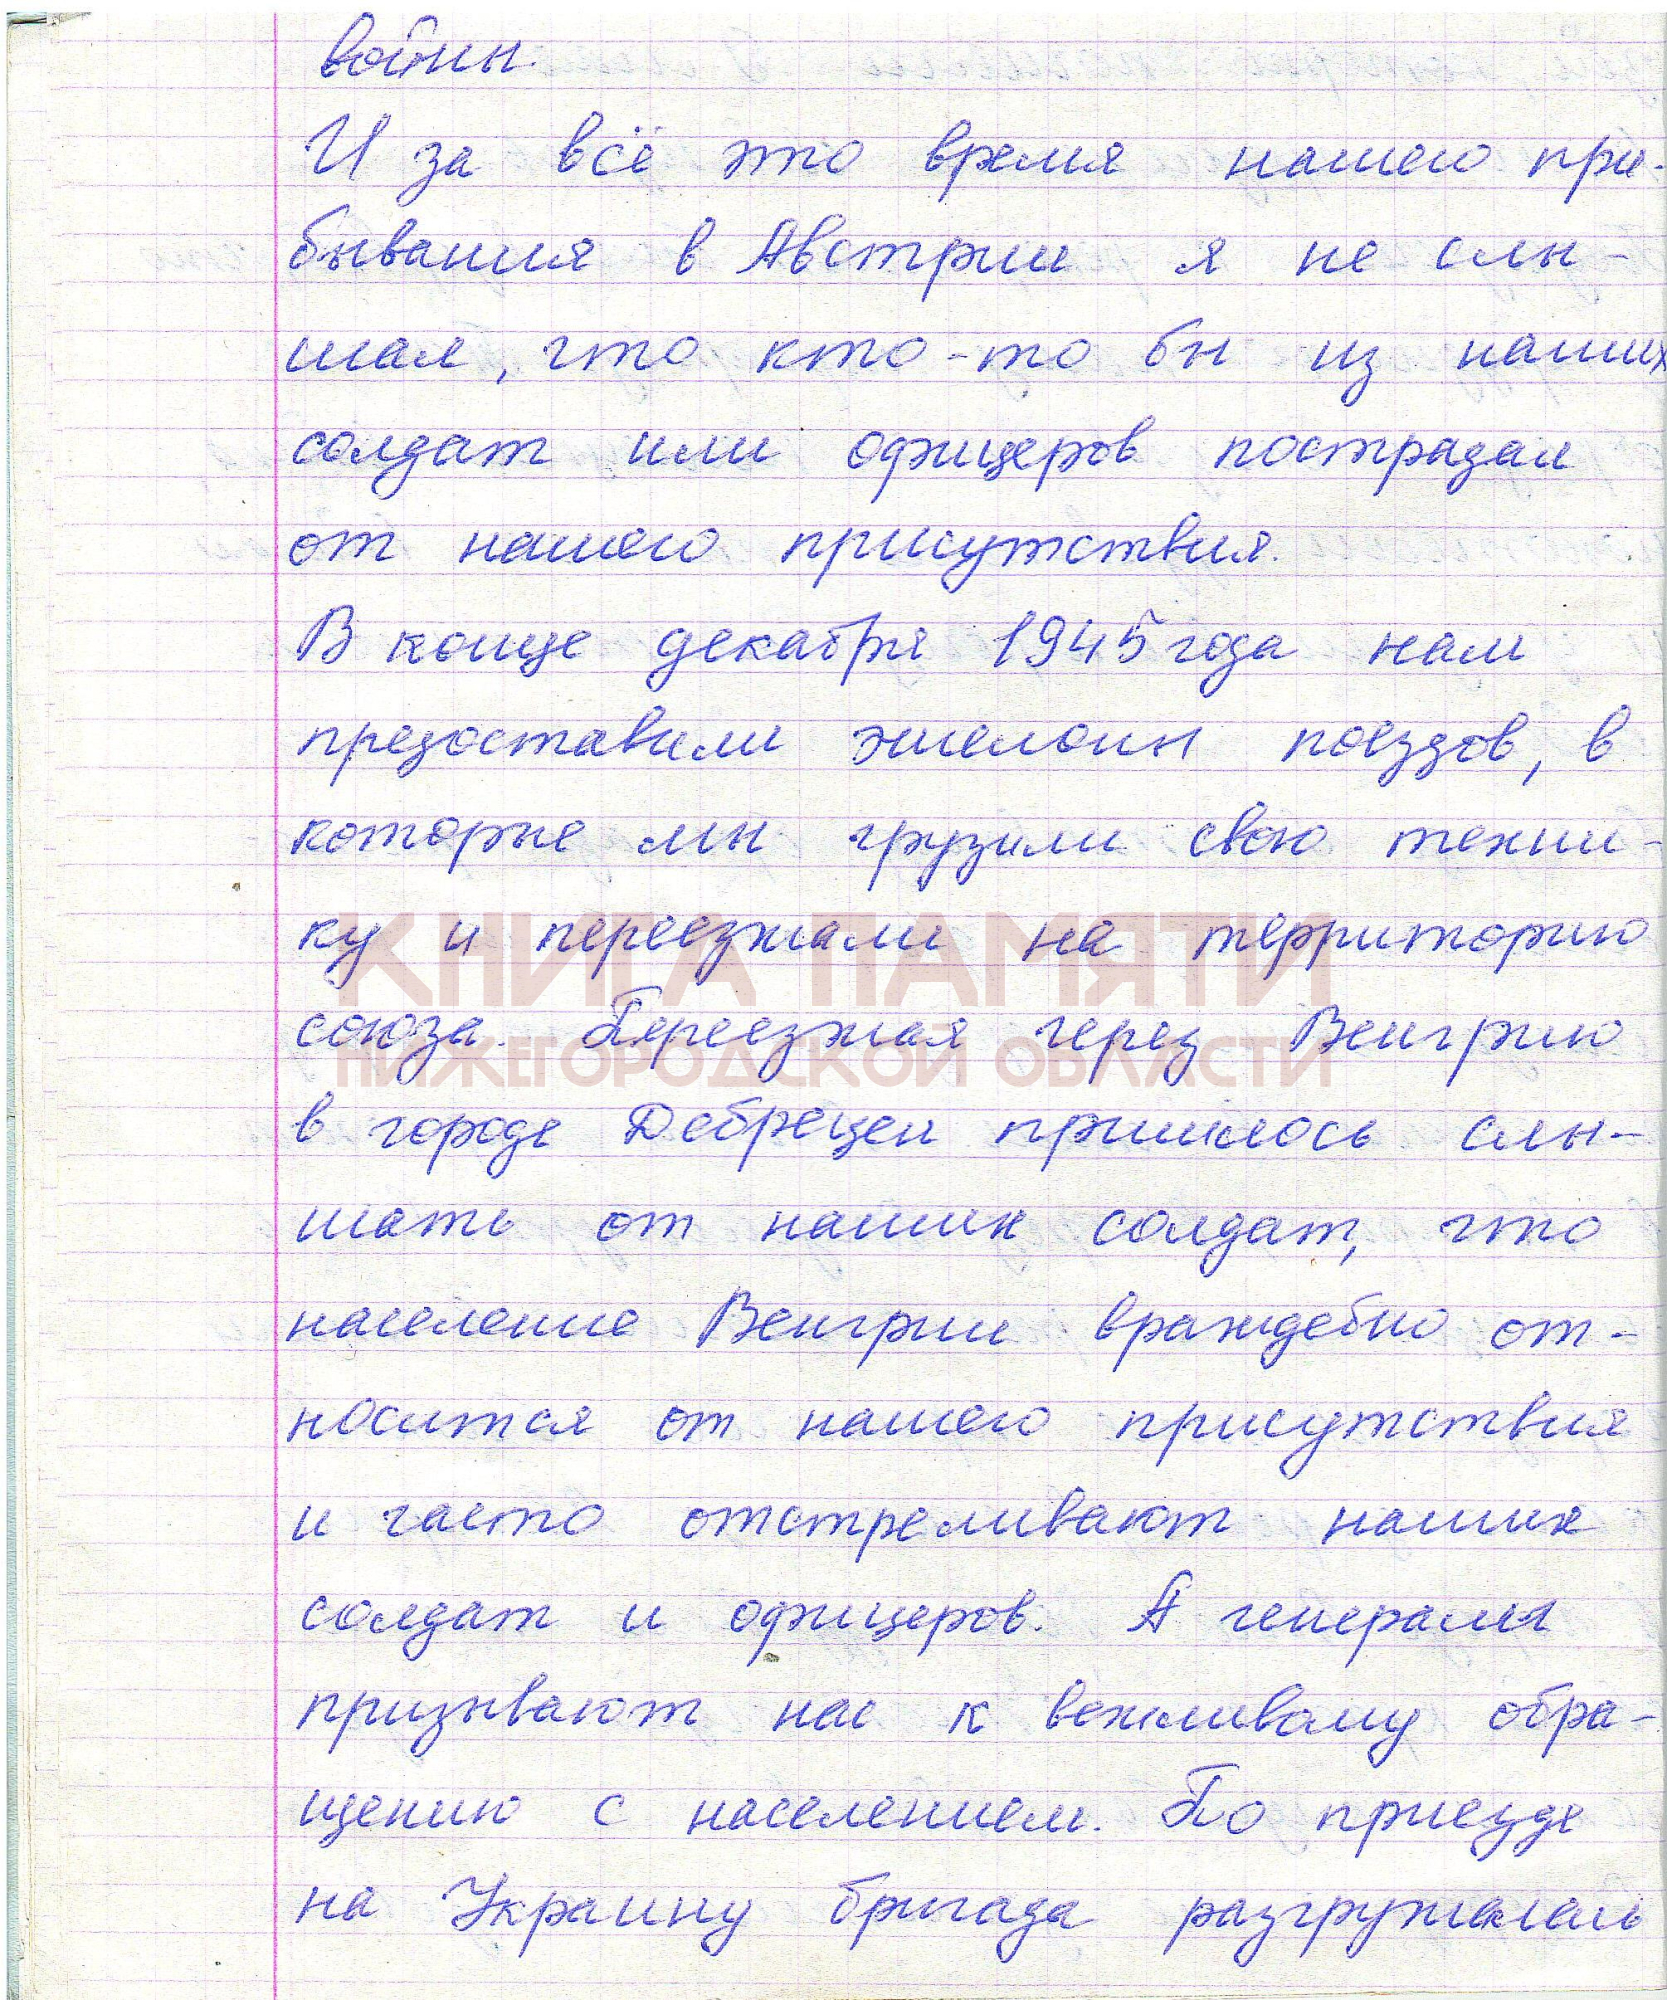 войны.
И за всё это время нашего при-
бывания в Австрии я не слы-
шал, что кто-то бы из наших
солдат или офицеров пострадал
от нашего присутствия.
В конце декабря 1945 года нам
предоставили эшелоны поездов, в
которые мы грузили свою техни-
ку и переезжали на территорию
КНИГА ПАМЯТИ
союза. Переезжая через Венгрию
НИЖЕГОРОДСКОЙ ОБЛАСТИ
в городе Дебрецен пришлось слы-
шать от наших солдат, что
население Венгрии враждебно от-
носится от нашего присутствия
и часто отстреливают наших
солдат и офицеров. А генералы
призывают нас к вежливому обра-
щению с населением. По приезде
на Украину бригада разгружалась